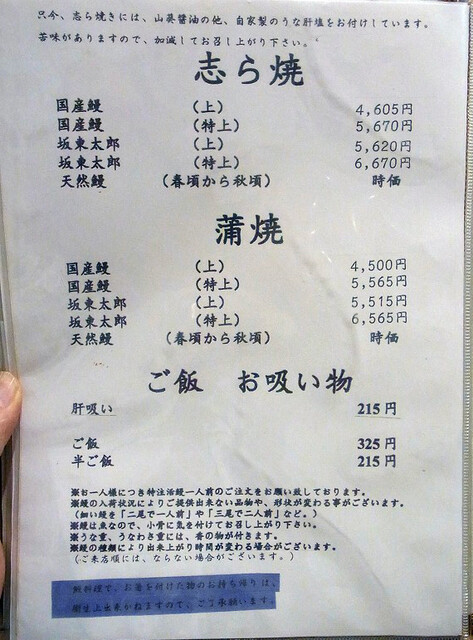 只今、志ら焼きには、山葵醤油の他、自家製のうな肝塩をお付けしています。
苦味がありますので、加減してお召し上がり下さい。
志ら焼
国産鰻 (上) 4,605円
国産鰻 (特上) 5,670円
坂東太郎 (上) 5,620円
坂東太郎 (特上) 6,670円
天然鰻 (春頃から秋頃) 時価
蒲焼
国産鰻 (上) 4,500円
国産鰻 (特上) 5,565円
坂東太郎 (上) 5,515円
坂東太郎 (特上) 6,565円
天然鰻 (春頃から秋頃) 時価
ご飯 お吸い物
肝吸い 215円
ご飯 325円
半ご飯 215円
※お一人様につき特注活鰻一人前のご注文をお願い致しております。
※鰻の入荷状況によりご提供出来ない品物や、形状が変わる事がございます。
(細い鰻を「二尾で一人前」や「三尾で二人前」など。)
※鰻は魚なので、小骨に気を付けてお召し上がり下さい。
※うな重、うなわさ重には、香の物が付きます。
※鰻の種類により出来上がり時間が変わる場合がございます。
(ご来店順には、ならない場合がございます。)
鰻料理で、お箸を付けた物のお持ち帰りは、
衛生上出来かねますので、ご了承願います。